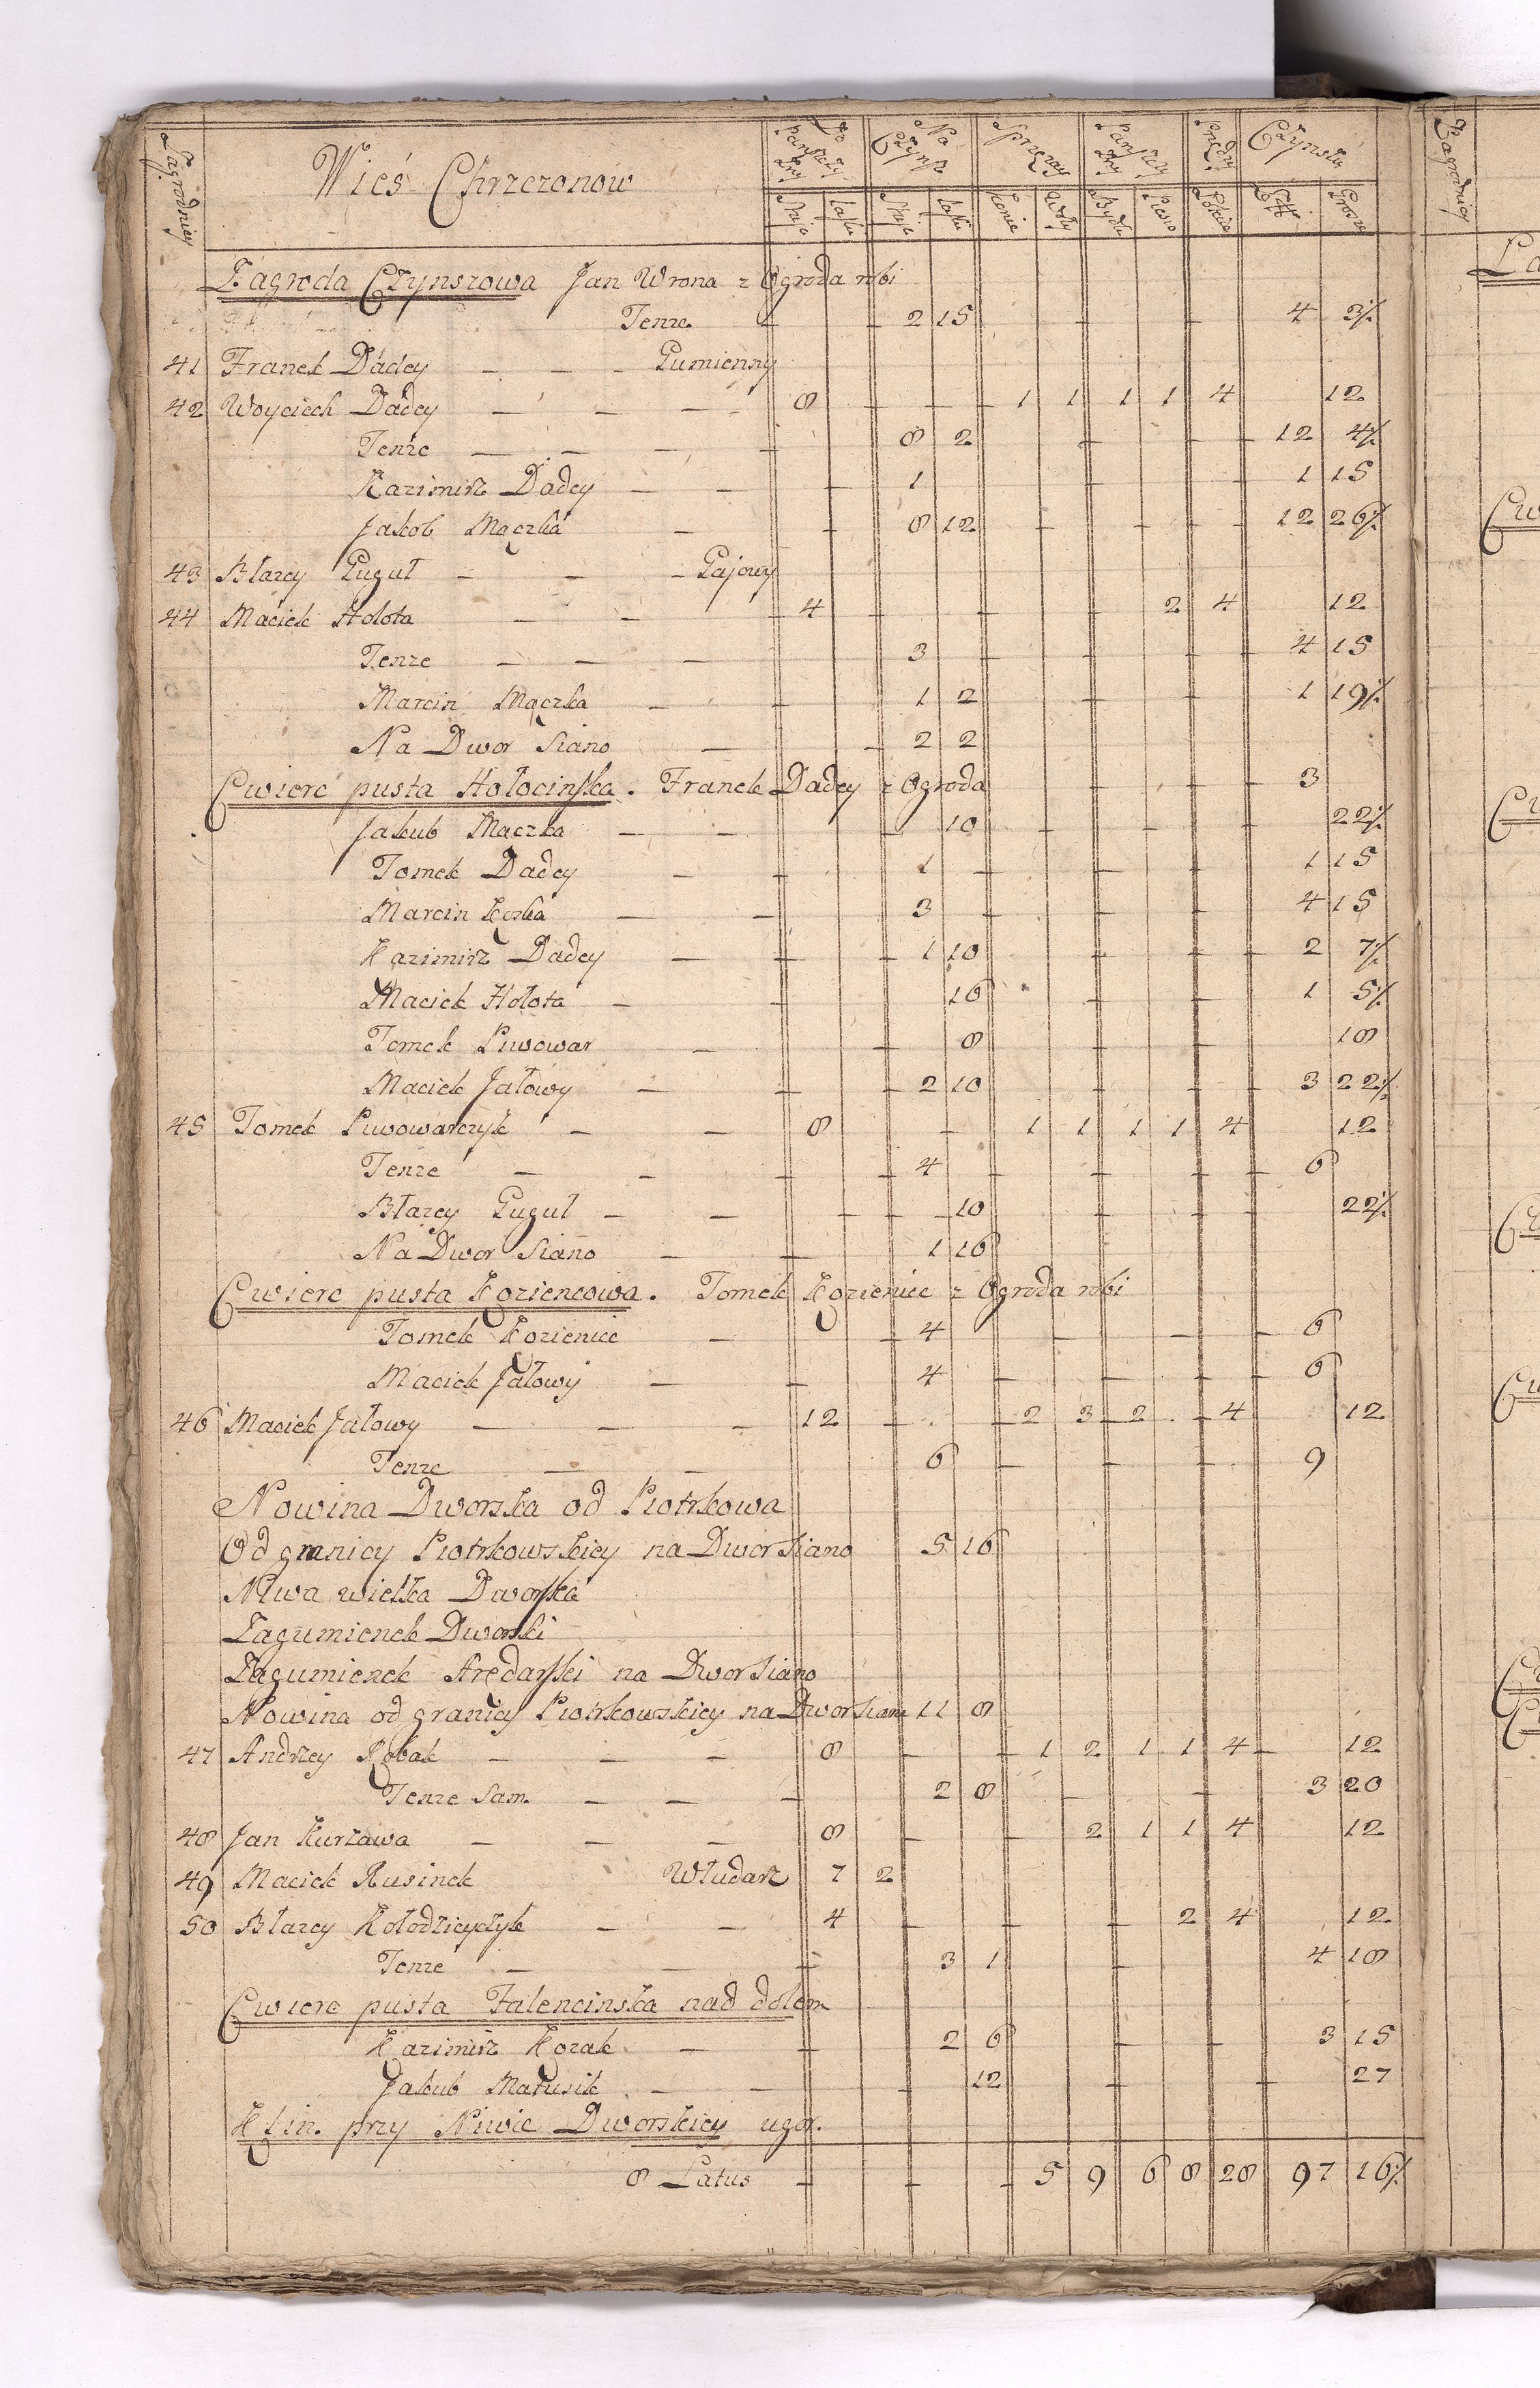 Zagrodnicy
Wieś Chrzczonow
Czynszu
Konie Woły Bydło Pieso
Zagroda Czynszowa Jan Wrona z Ogroda robi
Tenze 2 15 4 3½
41 Franek Dadey Gumienny
42 Woyciech Dadey 8 1 1 1 1 4 12
Tenze 8 2 12 4½
Kazimirz Dadey 1 1 15
Jakob Mączka 8 12 12 26½
43 Błazey Guguł Gajowy
44 Maciek Hołota 4 2 4 12
Tenze 3 4 15
Marcin Mączka 1 2 1 19½
Na Dwor Siano 2 2
Cwierc pusta Hołocinska. Franek Dadey z Ogroda 3
Jakub Mączka 10 22½
Tomek Dadey 1 1 15
Marcin Łączka 3 4 15
Kazimirz Dadey 1 10 2 7½
Maciek Hołota 16 1 5½
Tomek Piwowar 8 18
Maciek Jałowy 2 10 3 22½
45 Tomek Piwowarczyk 8 1 1 1 1 4 12
Tenze 4 6
Błazey Guguł 10 22½
Na Dwor Siano 1 16
Cwierc pusta Koziencowa. Tomek Kozieniec z Ogroda robi
Tomek Kozieniec 4 6
Maciek Jałowy 4 6
46 Maciek Jałowy 12 2 3 2 4 12
Tenze 6 9
Nowina Dworska od Piotrkowa
Od granicy Piotrkowskiey na Dwor Siano 5 16
Niwa wielka Dworska
Zagumienek Dworski
Zagumienek Arędarski na Dwor Siano
Nowina od granicy Piotrkowskiey na Dwor Siano 11 8
47 Andrzey Robak 8 1 2 1 1 4 12
Tenze Sam 2 8 3 20
48 Jan Kurzawa 8 2 1 1 4 12
49 Maciek Rusinek Włudarz 7 2
50 Błazey Kołodzieyczyk 4 2 4 12
Tenze 3 1 4 18
Cwierc pusta Falencinska nad dołem
Kazimirz Kozak 2 6 3 15
Jakub Matusik 12 27
Klin przy Niwie Dworskiey ugor.
8 Latus 5 9 6 8 28 97 16½
Zagrodnicy